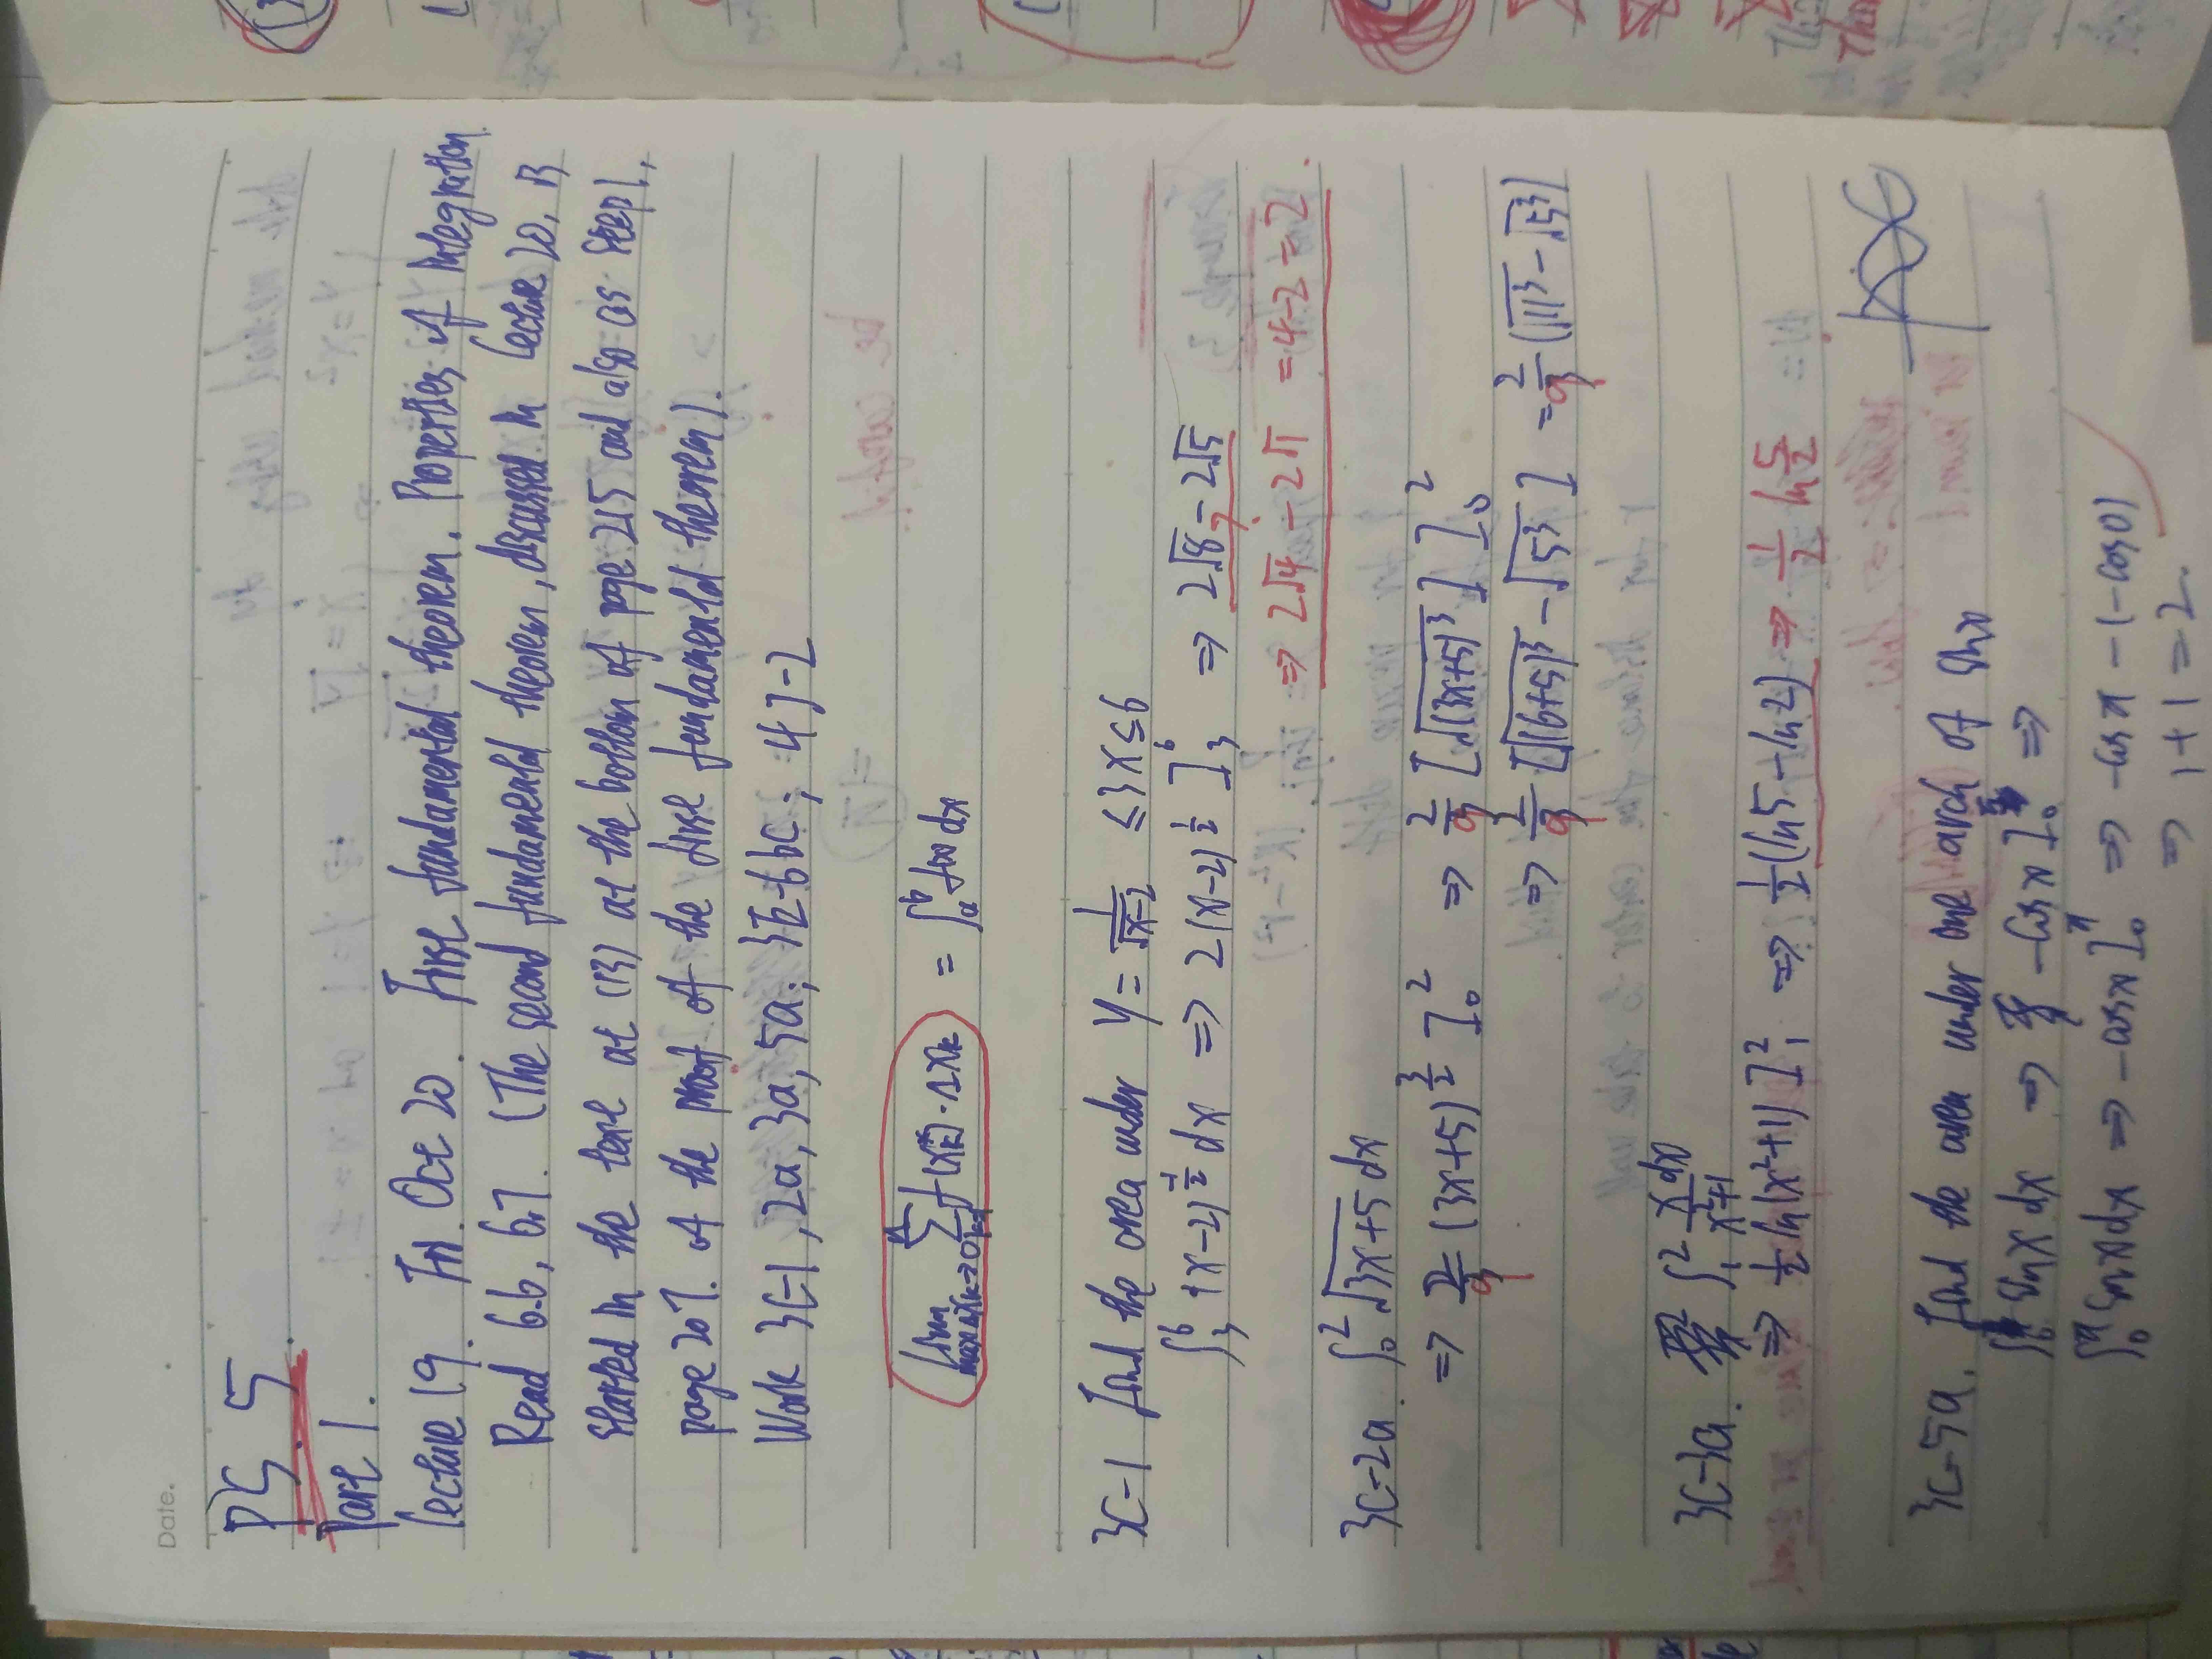 Date.
PS 5
Part 1.
Lecture 19. Fri Oct 20. First fundamental theorem. Properties of integration.
Read 6.6, 6.7. (The second fundamental theorem, discussed in Lecture 20, is
started in the text at (13) at the bottom of page 215 and also as Step 1,
page 207. of the proof of the first fundamental theorem).
Work 3C-1, 2a, 3a, 5a; 3E-6bc; 4J-2
lim max Δxₖ→0 Σ f(xₖ*)·Δxₖ = ∫ₐᵇ f(x) dx
3C-1 find the area under y = 1/√(x-2) ≤3 x ≤ 6
∫₃⁶ (x-2)^(-1/2) dx ⇒ 2(x-2)^(1/2) ]₃⁶ ⇒ 2√8 - 2√5
⇒ 2√4 - 2√1 = 4-2 = 2.
3C-2a. ∫₀² √(3x+5) dx
⇒ 2/9 (3x+5)^(3/2) ]₀² ⇒ 2/9 [√(3x+5)³] ]₀²
⇒ 2/9 [√(6+5)³ - √5³ ] = 2/9 (√11³ - √5³)
3C-3a. ∫₁² x dx/(x²+1)
⇒ 1/2 ln(x²+1) ]₁² ⇒ 1/2 (ln5 - ln2) ⇒ 1/2 ln 5/2
3C-5a. find the area under one arch of sin x
sin x dx ⇒ -cos x ]₀ ⇒
∫₀^π sin x dx ⇒ -cos x ]₀^π ⇒ -cos π - (-cos 0)
⇒ 1+1 = 2.